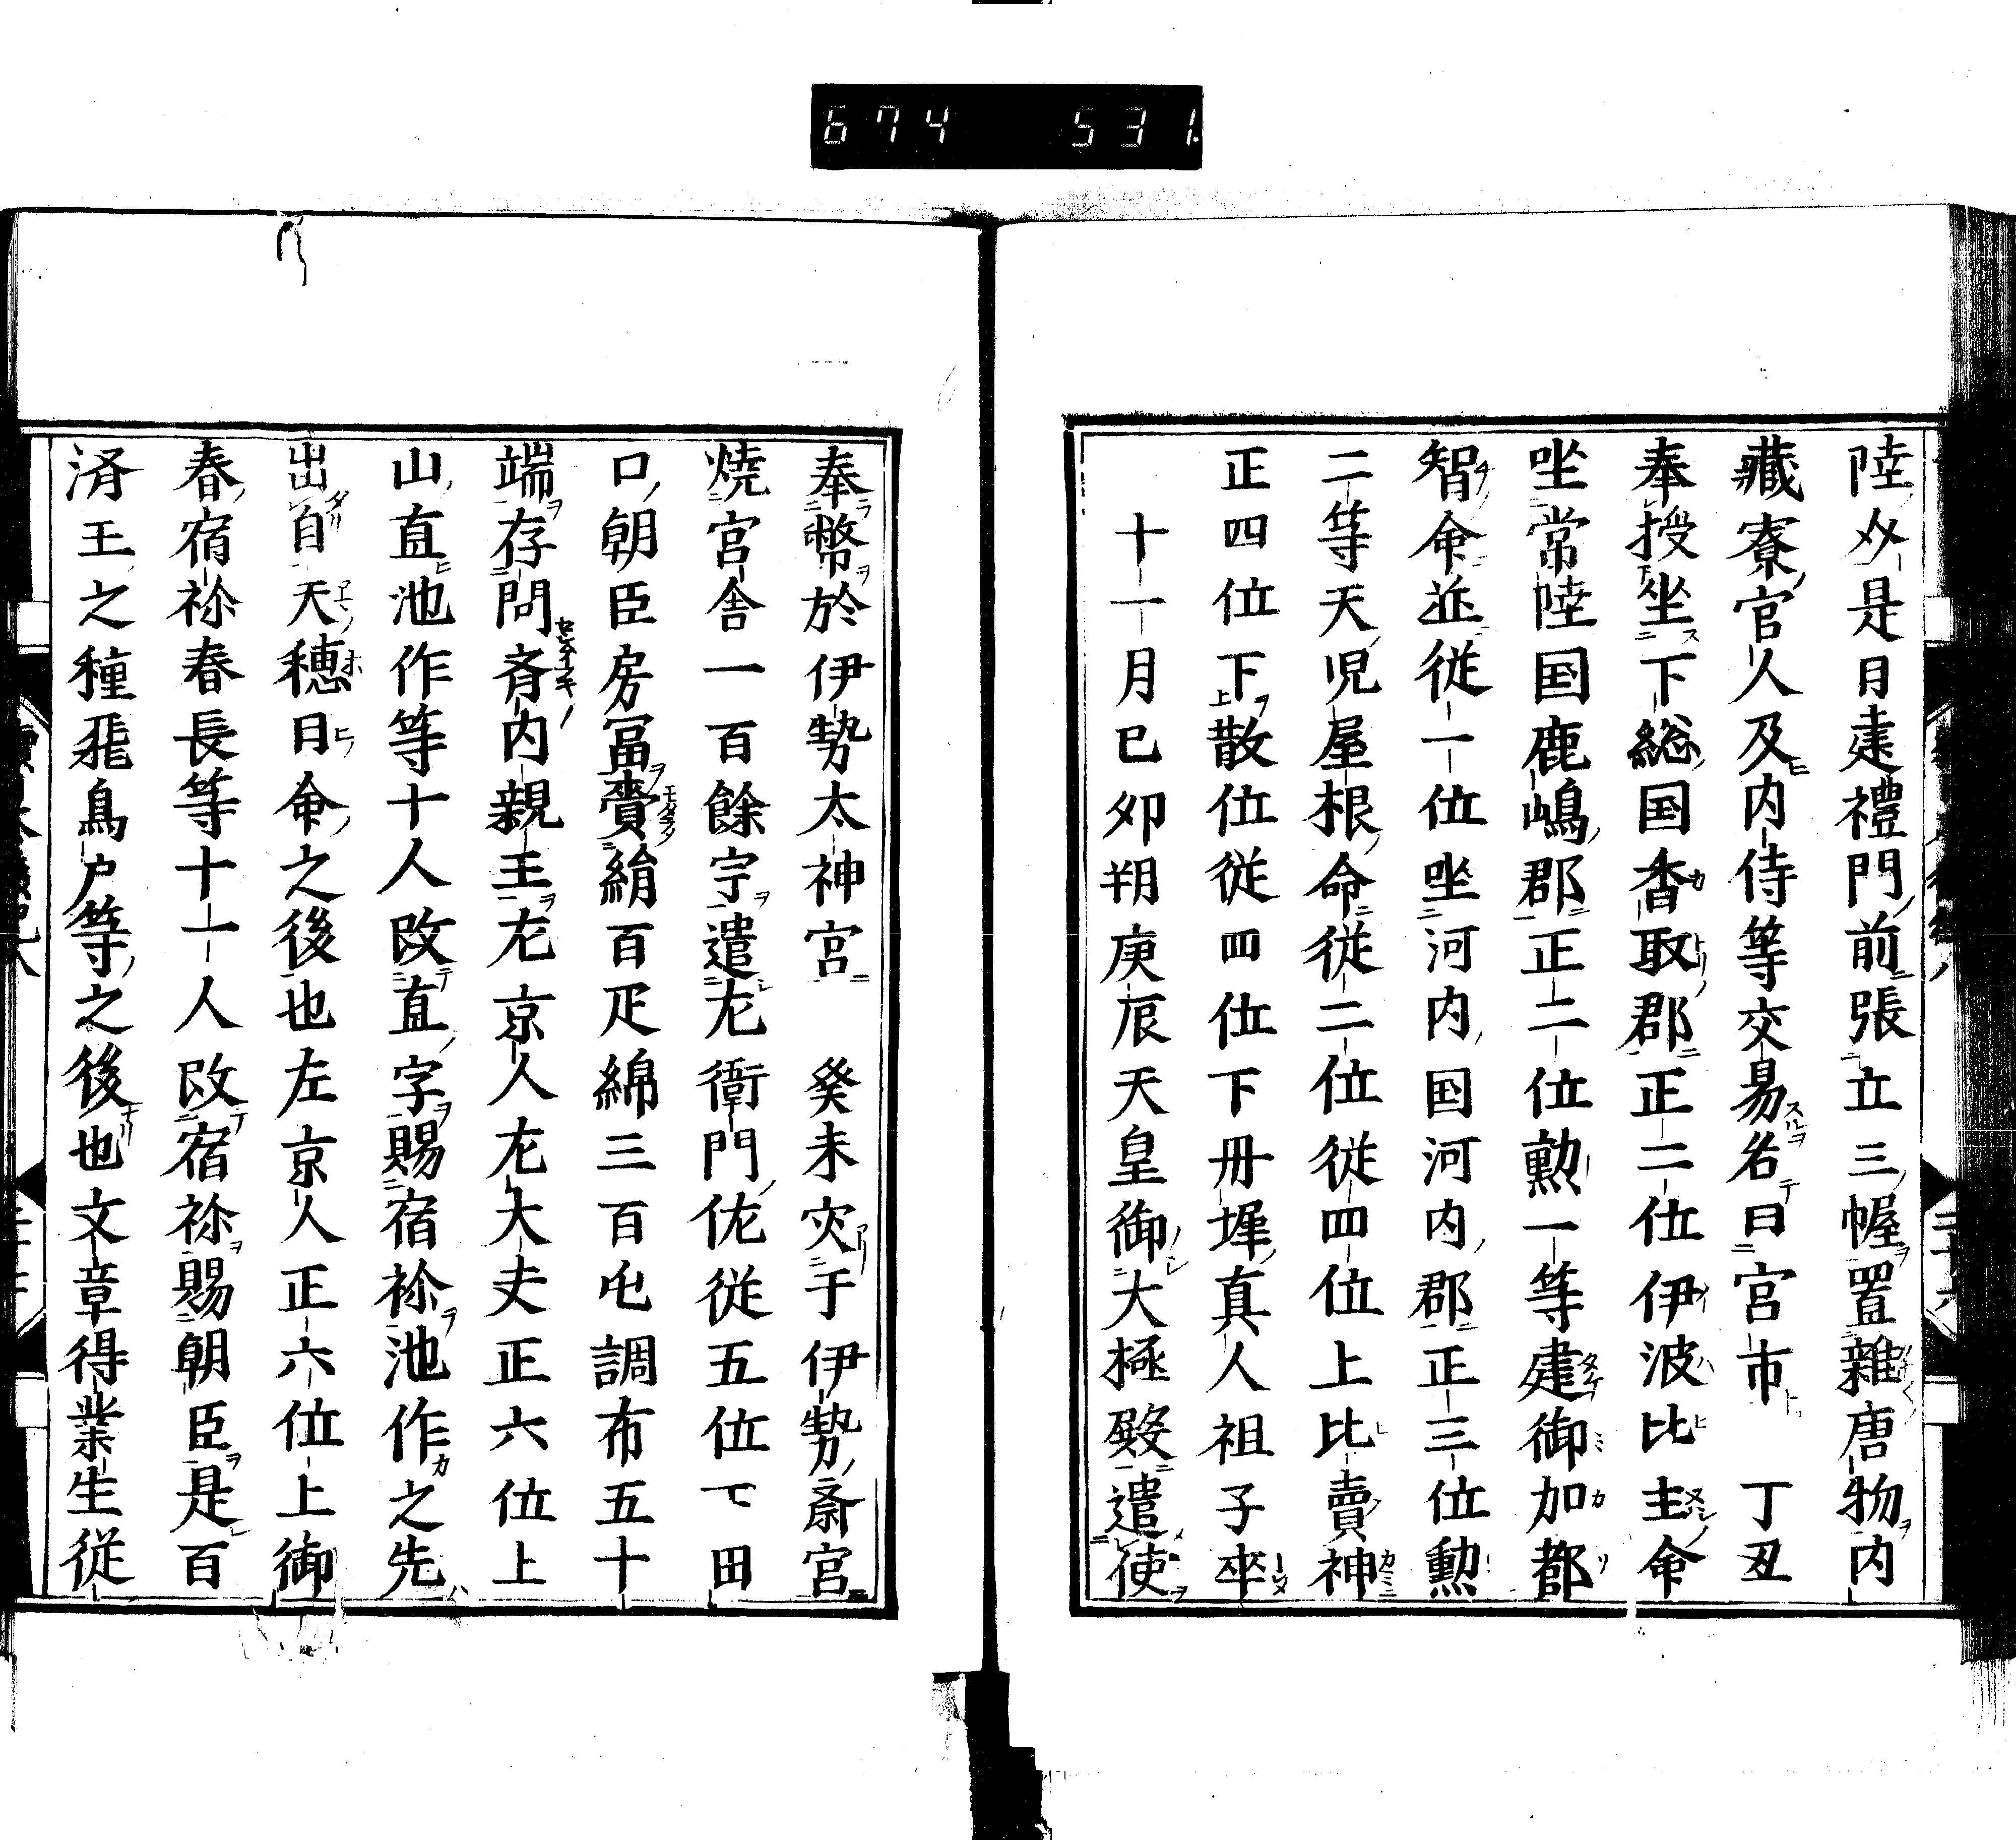 674 531
陸奥是日建禮門前張立三幄置雜唐物内
藏寮官人及内侍等交易名曰宮市 丁丑
奉授坐下総国香取郡正二位伊波比主命
坐常陸国鹿嶋郡正二位勲一等建御加都
智命並従一位坐河内国河内郡正三位勲
二等天児屋根命従二位従四位上比賣神
正四位下散位従四位下丹墀真人祖子卒
十一月己夘朔庚辰天皇御大極殿遣使
奉幣於伊勢太神宮 癸未灾于伊勢斎宮
焼宮舎一百餘宇遣左衛門佐従五位下田
口朝臣房冨賷絹百疋綿三百屯調布五十
端存問斉内親王左京人左大史正六位上
山直池作等十人改直字賜宿祢池作之先
出自天穂日命之後也左京人正六位上御
春宿祢春長等十一人改宿祢賜朝臣是百
済王之種飛鳥戸等之後也文章得業生従